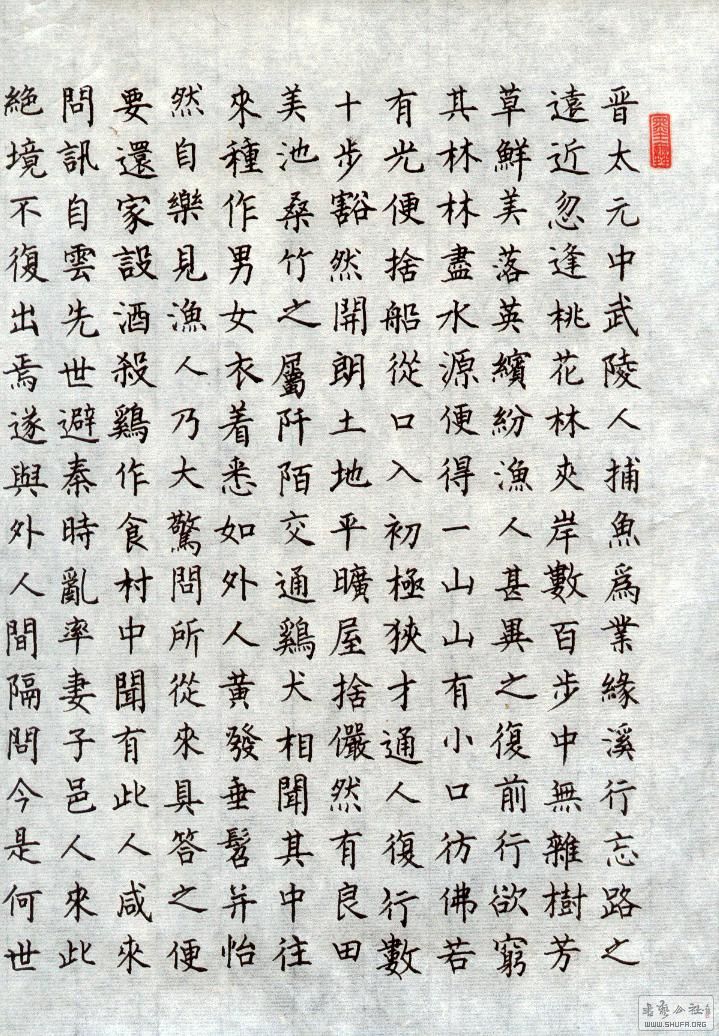 晋太元中武陵人捕魚爲業緣溪行忘路之
遠近忽逢桃花林夾岸數百步中無雜樹芳
草鮮美落英繽紛漁人甚異之復前行欲窮
其林林盡水源便得一山山有小口彷佛若
有光便捨船從口入初極狹才通人復行數
十步豁然開朗土地平曠屋捨儼然有良田
美池桑竹之屬阡陌交通鷄犬相聞其中往
來種作男女衣着悉如外人黃發垂髫并怡
然自樂見漁人乃大驚問所從來具答之便
要還家設酒殺鷄作食村中聞有此人咸來
問訊自雲先世避秦時亂率妻子邑人來此
絕境不復出焉遂與外人間隔問今是何世
書藝公社
WWW.SHUFA.ORG